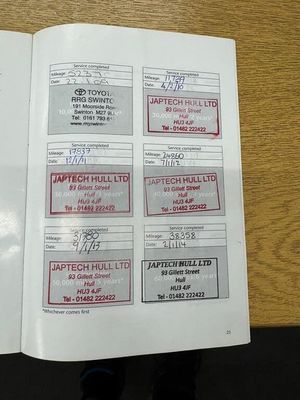 Service completed
Mileage:
Date:
TOYOTA
RRG SWINTO
191 Moorside Road
Swinton M27 9
Tel: 0161 793 6
www.rrgswinto
Service completed
Mileage:
Date: 4/2/10
JAPTECH HULL LTD
93 Gillett Street
Hull
HU3 4JF
Tel - 01482 222422
Service completed
Mileage: 17837
Date: 12/1/11
JAPTECH HULL LTD
93 Gillett Street
Hull
HU3 4JF
Tel - 01482 222422
Service completed
Mileage: 24860
Date: 7/1/12
JAPTECH HULL LTD
93 Gillett Street
Hull
HU3 4JF
Tel - 01482 222422
Service completed
Mileage:
Date: 9/1/13
JAPTECH HULL LTD
93 Gillett Street
Hull
HU3 4JF
Tel - 01482 222422
Service completed
Mileage: 38358
Date: 2/1/14
JAPTECH HULL LTD
93 Gillett Street
Hull
HU3 4JF
Tel - 01482 222422
*Whichever comes first